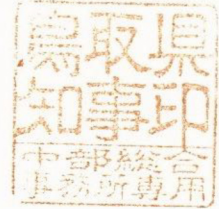 鳥取県
知事印
中部総合
事務所専用